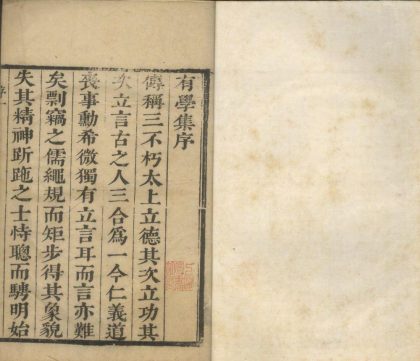 有學集序
傳稱三不朽太上立德其次立功其
次立言古之人三合爲一今仁義道
喪事勳希微獨有立言耳而言亦難
矣剽竊之儒繩規而矩步得其象貌
失其精神斨跪之士恃聰而騁明始
序
一